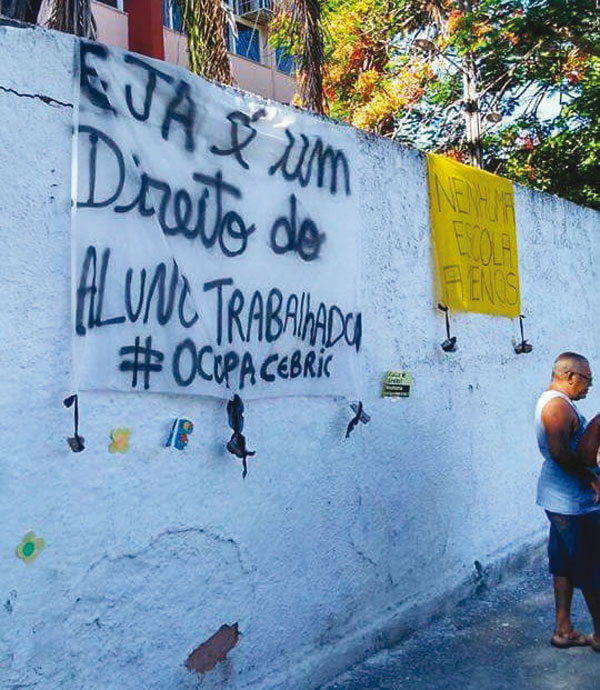 EJA é um
Direito do
ALUNO TRABALHADOR
#OCUPACEBRIC
NENHUMA
ESCOLA
A MENOS